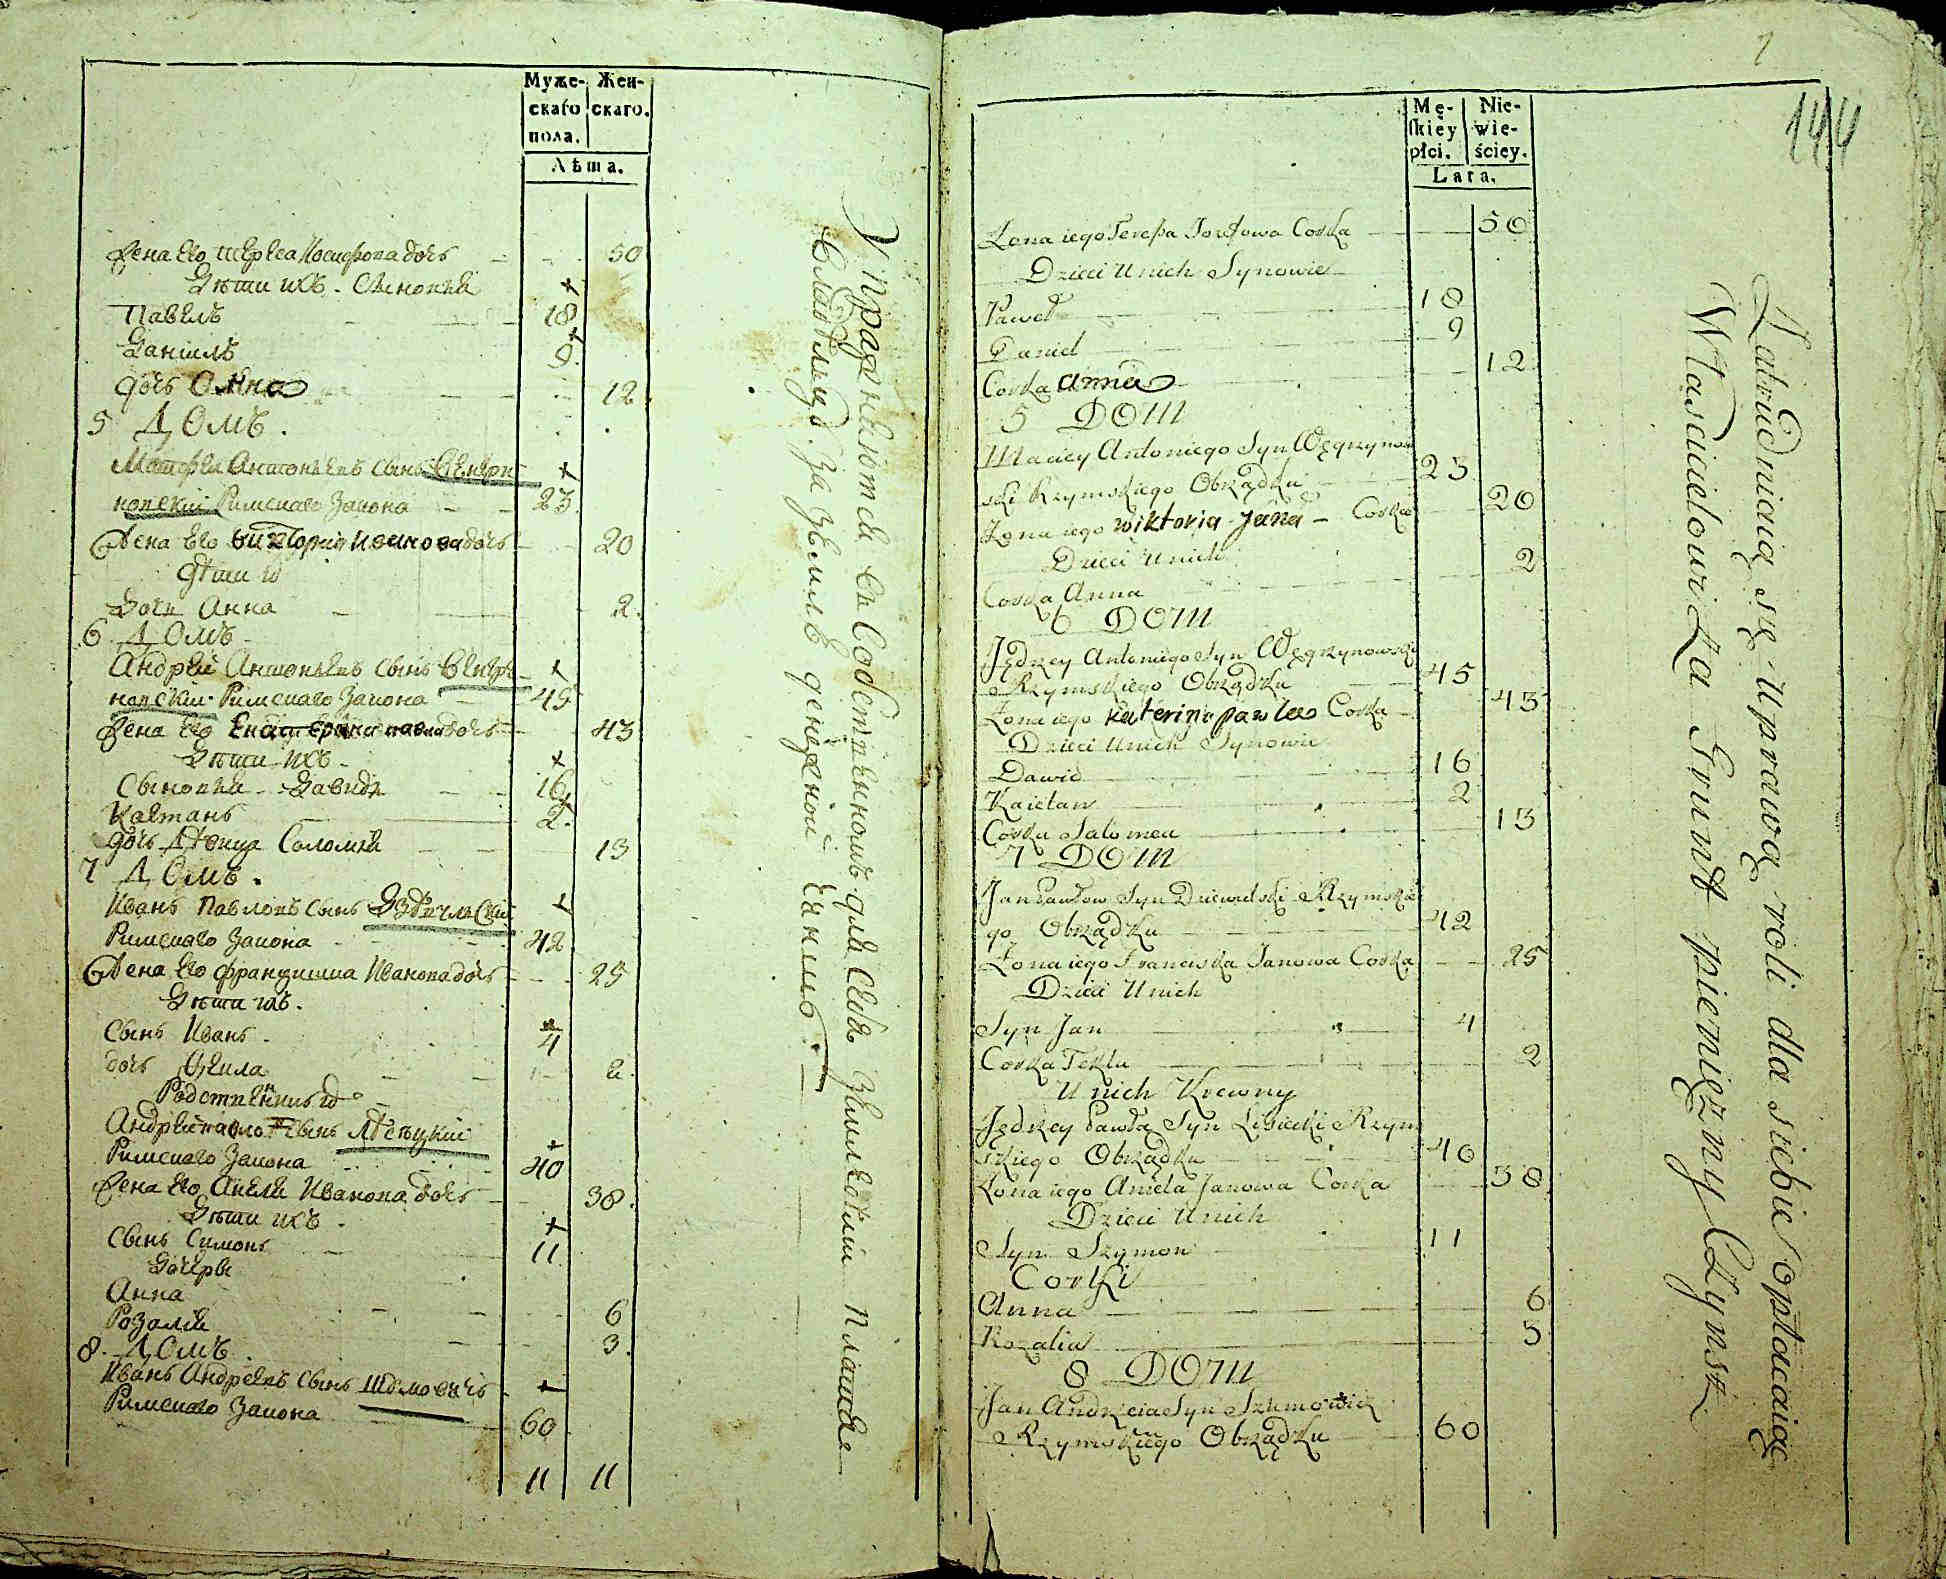 Муже-
скаго
пола.
Жен-
скаго.
Лѣта.
Жена Его Тереса Іосифова дочь 50
Дѣти ихъ. Сыновья
Павелъ 18
Даніилъ 9
дочь Анна 12
5 Домъ.
Матфей Антоньевъ сынъ Венгри-
новскій Римскаго Закона 23
Жена Его Викторія Иванова дочь 20
Дѣти и
Дочь Анна 2.
6. Домъ
Андрей Антоньевъ сынъ Венгри-
новскій Римскаго Закона 45
Жена Его Екатерина павла дочь 43
Дѣти ихъ
Сыновья Давидъ 16
Каетанъ 2.
дочь Девица Соломея 13
7 Домъ.
Иванъ Павловъ Сынъ
Римскаго Закона 42
Жена Его Францишка Иванова дочь 25
Дѣти ихъ.
Сынъ Иванъ 4
дочь 2.
Андрей павло Сынъ
Римскаго Закона 40
Жена Его Анеля Иванова дочь 38.
Дѣти ихъ
Сынъ Симонъ 11
Дочери
Анна 6
Розалія 3.
8. Домъ
Иванъ Андреевъ Сынъ Шумовичъ
Римскаго Закона 60
11 11
Упражняются въ Собственномъ для Себя Земледѣліи платя
владѣльцу за землю денежной чиншъ.
144
Mę-
skiéy
płci.
Nie-
wie-
ściey.
Lata.
Żona iego Teressa Jozefowa Corka 50
Dzieci U nich Synowie
Paweł 18
Daniel 9
Corka Anna 12
5 DOM
Maciey Antoniego Syn Węgrzynow
ski Rzymskiego Obrządku 23
Żona iego wiktoria Jana Corka 20
Dzieci U nich
Corka Anna 2
6 DOM
Jędrzey Antoniego Syn Węgrzynowski
Rzymskiego Obrządku 45
Żona iego katerina pawła Corka 43
Dzieci U nich Synowie
Dawid 16
Kaietan 2
Corka Salomea 13
7 DOM
Jan Pawłow Syn Dziewulski Rzymskie
go Obrządku 42
Żona iego Franciszka Janowa Corka 25
Dzieci U nich
Syn Jan 4
Corka Tekla 2
U nich Krewny
Jędrzey Pawła Syn Lisiecki Rzym
skiego Obrządku 40
Żona iego Aniela Janowa Corka 38
Dzieci U nich
Syn Szymon 11
Corki
Anna 6
Rozalia 3
8 DOM
Jan Andrzeia Syn Szumowicz
Rzymskiego Obrządku 60
Zatrudniaią się uprawą roli dla siebie opłacaiąc
Włascicielowi Za Grunt pieniężny Czynsz